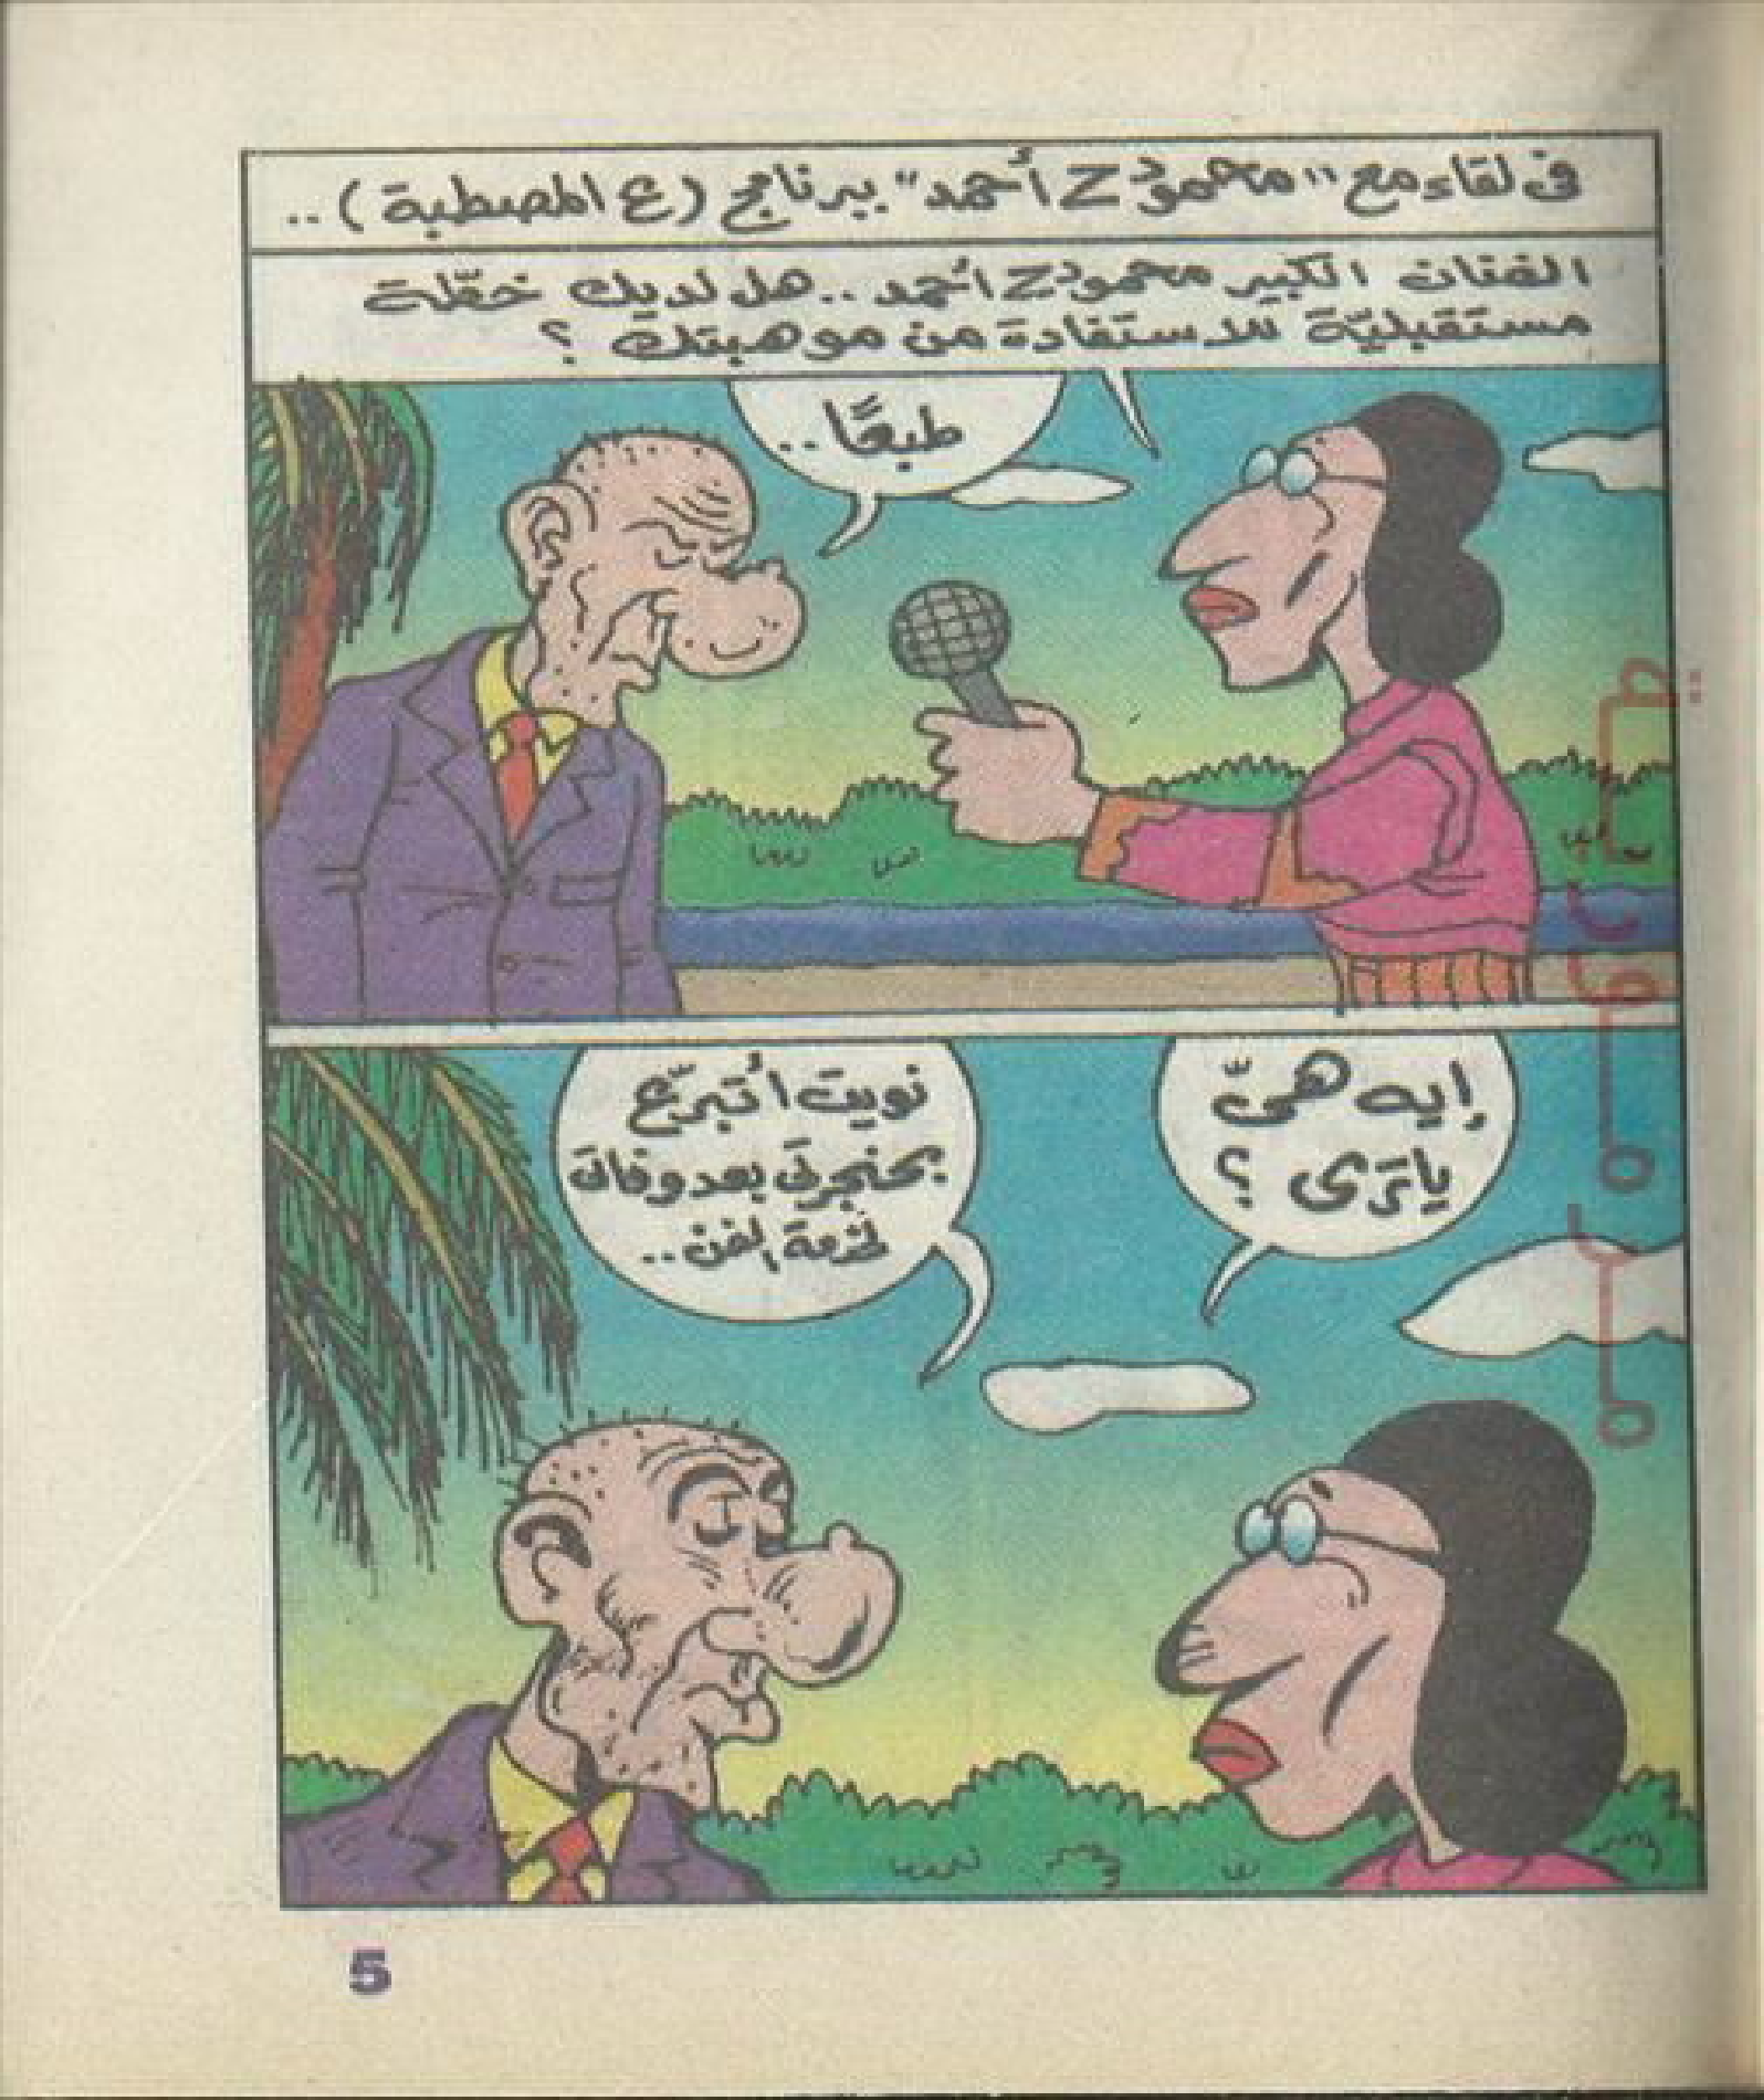 فى لقاء مع "محمود ح أحمد" ببرنامج (ع المصطبة) ..
الفنان الكبير محمود ح أحمد .. هل لديك خطّة
مستقبليّة للاستفادة من موهبتك ؟
طبعًا ..
إيه هىّ
ياترى ؟
نويت أتبرّع
بحنجرتى بعد وفاتى
لخدمة الفن ..
5